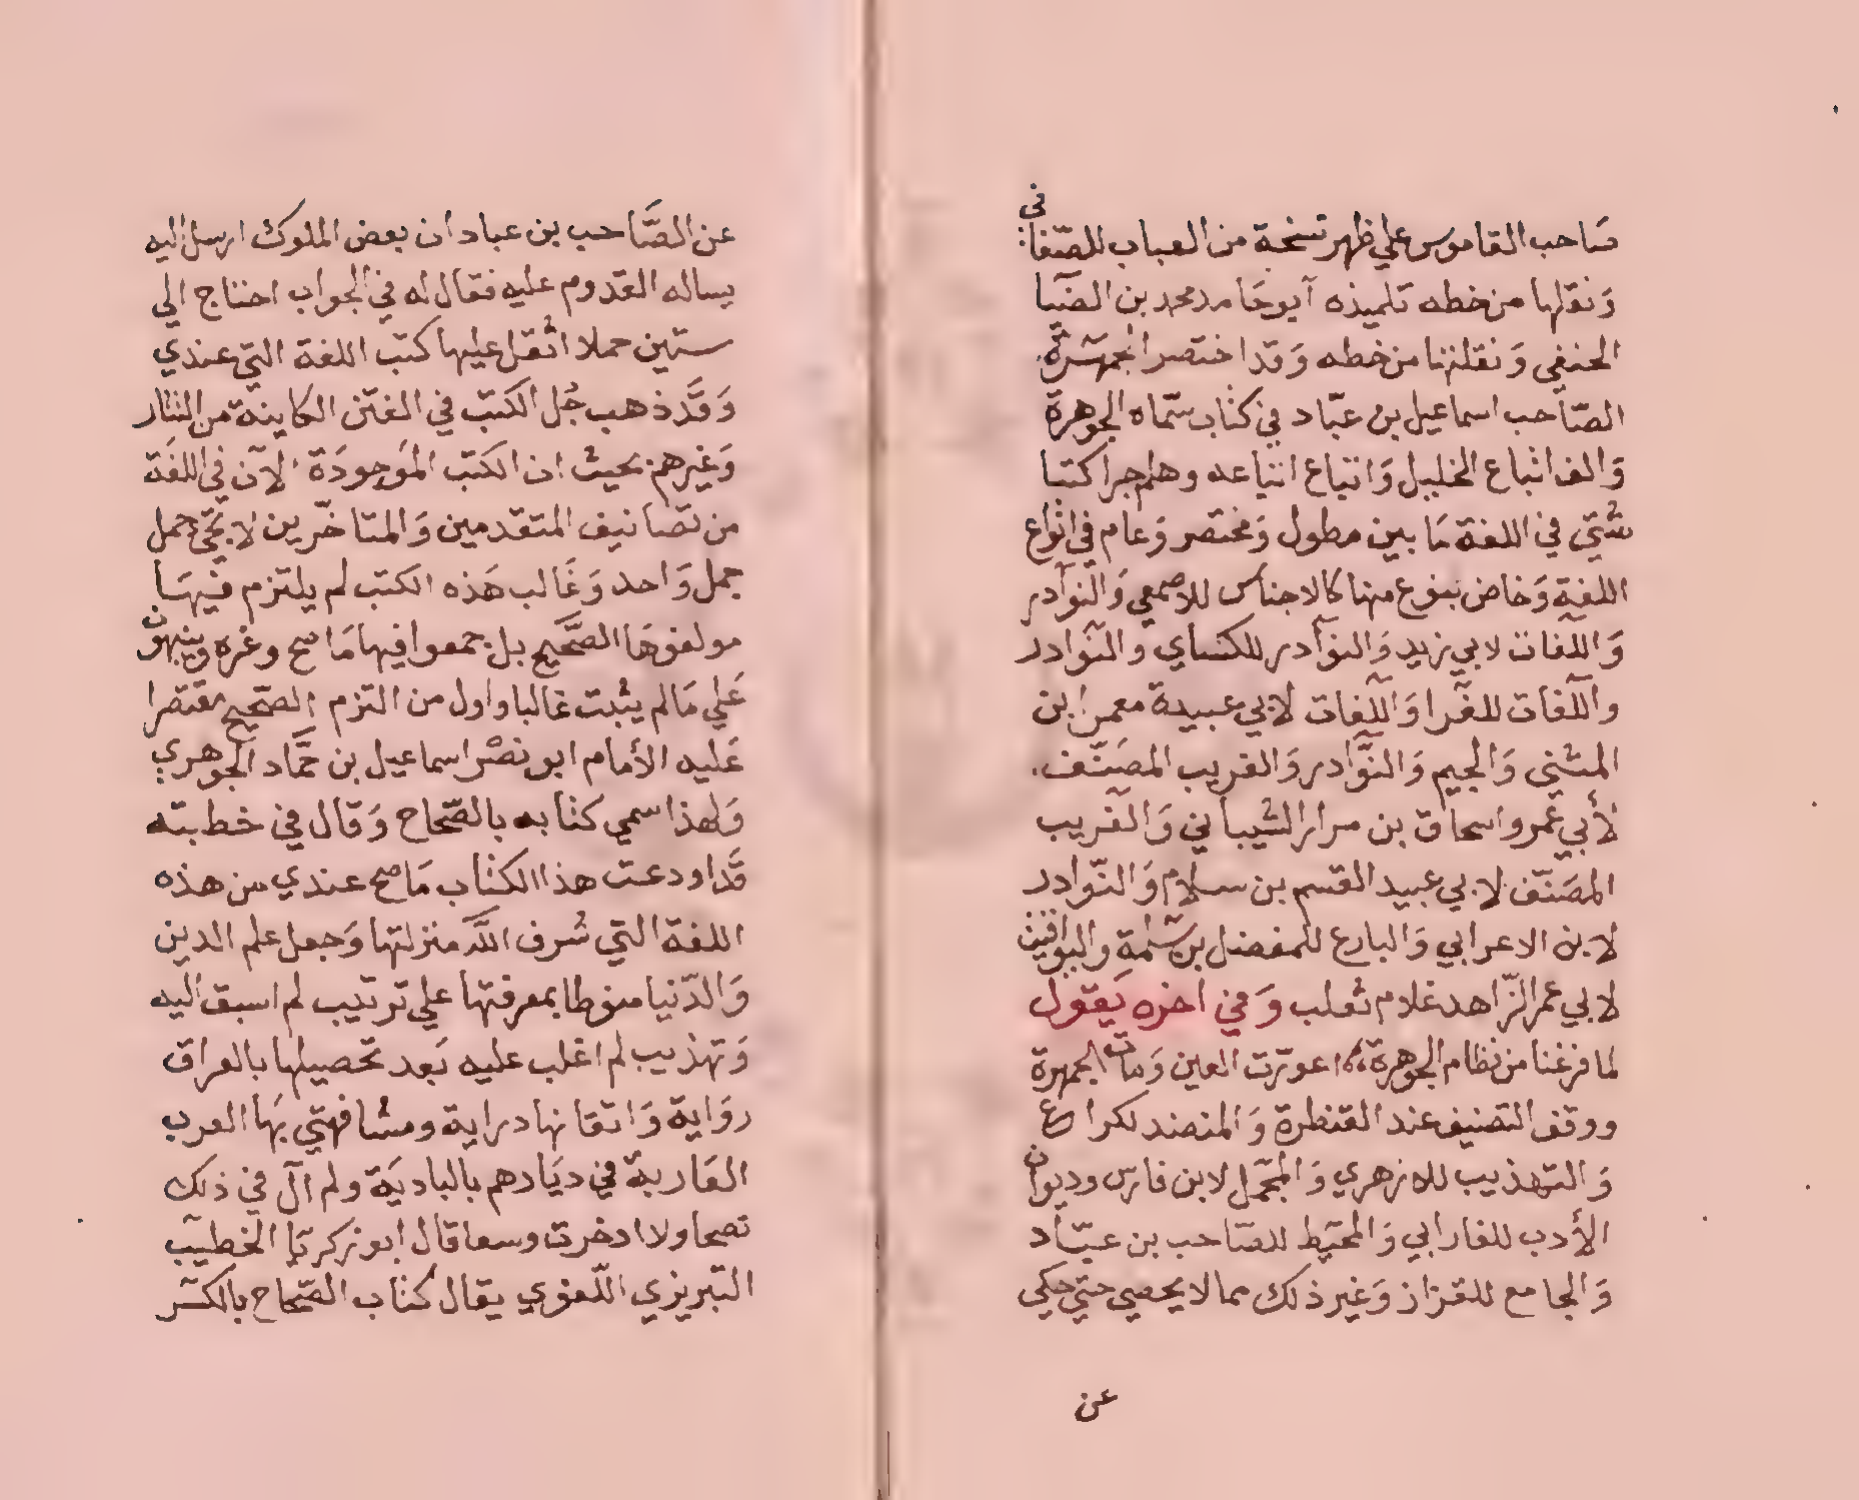 صاحب القاموس علي ظهر نسخة من العباب للصغاني
وَنقلها من خطه تلميذه آبو حَامد محمد بن الضيا
الحنفي وَنقلتها من خطه وَقد اختصر الجمهَرة
الصّاحب اسماعيل بن عبّاد في كتاب سمّاه الجوهرة
وَالف اتباع الخليل وَاتباع اتباعه وهلم جرا كتبا
شتي في اللغة مَا بين مطول وَمختصر وَعام في انواع
اللغة وَخاص بنوع منها كالاجناس للاصمعي وَالنوادر
وَاللغات لابي زيد وَالنوادر للكسَاي والنوادر
واللغات للفرا وَاللغات لابي عبيدة معمر ابن
المثني وَالجيم وَالنَّوادر وَالغريب المصَنّف.
لأبي عَمرو اسحاق بن مرار الشيباني وَالغريب
المصَنّف لابي عبيد القسم بن سلام وَالنّوادر
لابن الاعرابي وَالبارع للمفضل بن سَلمة واليواقيت
لابي عمر الزّاهد غلام ثعلب وَفي اخره يَقول
لما فرغنا من نظام الجوهرة، اعورّت العين وَمات الجمهرة
ووقف التصنيف عند القنطرة وَالمنضد لكراع
وَالتهذيب للازهري وَالمجمَل لابن فارس وديوان
الأدب للفارابي وَالمحيط للصّاحب بن عبّاد
وَالجامع للقزاز وَغير ذلك مما لا يحصي حتي حكي
عن
عن الصَّاحب بن عباد ان بعض الملوك ارسل اليه
يساله القدوم عليه فقال له في الجواب احتاج الي
ستين حملا اثقل عليها كتب اللغة التي عندي
وَقَد ذهب جُل الكتب في الفتن الكاينة من التتار
وَغيرهم بحيث ان الكتب الموَجودَة الآن في اللغَة
من تصَانيف المتقدمين وَالمتاخّرين لا تجي حمل
جمل وَاحد وَغَالب هَذه الكتب لم يلتزم فيهَا
مولفوهَا الصَّحيح بل جمعوا فيها مَا صح وغره وينبهون
عَلي مَا لم يثبت غالبا واول من التزم الصّحيح مقتصرا
عَليه الأمام ابو نصْر اسماعيل بن حمَّاد الجوَهري
وَلهذا سمي كتابه بالصّحاح وَقال في خطبته
قَد اودعت هذا الكتاب مَا صح عندي من هذه
اللغة التي شرف اللَّه منزلتها وَجعل علم الدين
وَالدّنيا منوطا بمعرفتها علي ترتيب لم اسبق اليه
وَتهذيب لم اغلب عليه بَعد تحصيلها بالعراق
روَاية وَاتقانها دراية ومشافهتي بهَا العرب
العَاربة في ديَارهم بالباديَة ولم آل في ذلك
نصحا ولا ادخرت وسعا قال ابو زكريّا الخطيب
التبريزي اللّغوي يقال كتاب الصّحاح بالكسر